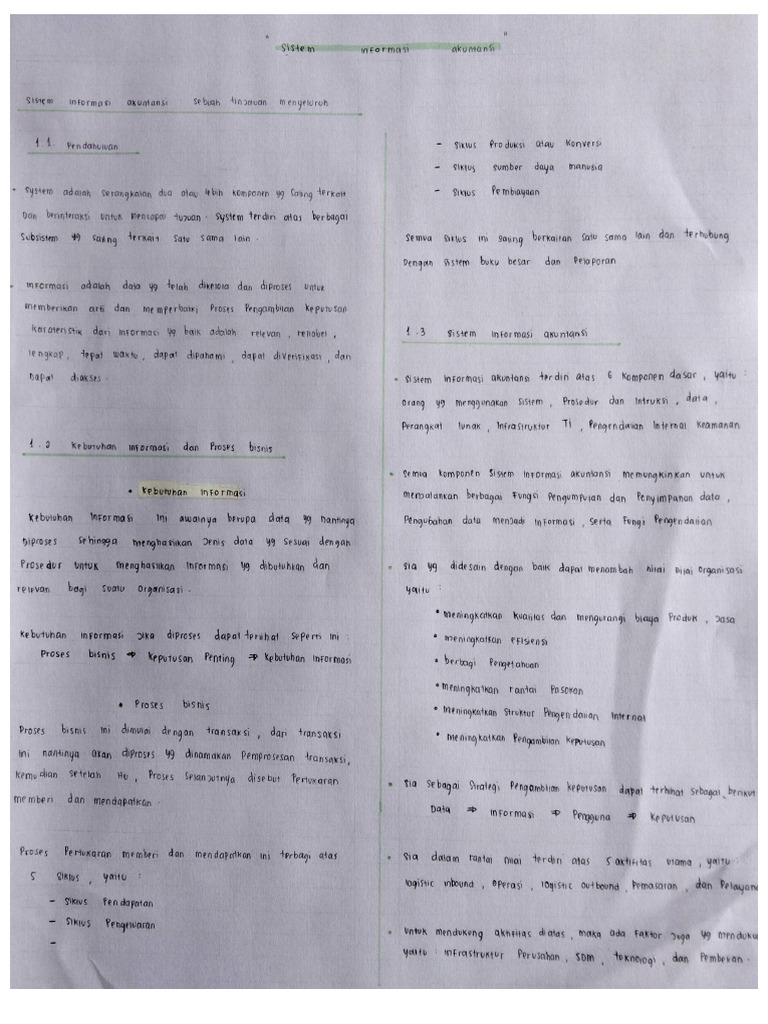 " Sistem informasi akuntansi "
Sistem informasi akuntansi sebuah tinjauan menyeluruh
1.1. Pendahuluan
• System adalah serangkaian dua atau lebih komponen yg saling terkait
dan berinteraksi untuk mencapai tujuan. System terdiri atas berbagai
Subsistem yg saling terkait satu sama lain.
• Informasi adalah data yg telah dikelola dan diproses untuk
memberikan arti dan memperbaiki Proses Pengambilan keputusan
karateristik dari informasi yg baik adalah relevan, reliabel,
lengkap, tepat waktu, dapat dipahami, dapat diverifikasi, dan
Dapat diakses.
1.2 Kebutuhan informasi dan Proses bisnis
• Kebutuhan informasi
Kebutuhan informasi ini awalnya berupa data yg nantinya
Diproses sehingga menghasilkan Jenis data yg sesuai dengan
Prosedur untuk menghasilkan informasi yg dibutuhkan dan
relevan bagi suatu organisasi.
Kebutuhan informasi jika diproses dapat terlihat seperti ini :
Proses bisnis ⇒ Keputusan Penting ⇒ Kebutuhan informasi
• Proses bisnis
Proses bisnis ini dimulai dengan transaksi, dari transaksi
ini nantinya akan diproses yg dinamakan Pemprosesan transaksi,
Kemudian setelah itu, Proses selanjutnya disebut Pertukaran
memberi dan mendapatkan.
Proses Pertukaran memberi dan mendapatkan ini terbagi atas
5 siklus, yaitu :
– Siklus Pendapatan
– Siklus Pengeluaran
–
– Siklus Produksi atau Konversi
– Siklus sumber daya manusia
– Siklus Pembiayaan
Semua siklus ini saling berkaitan satu sama lain dan terhubung
Dengan sistem buku besar dan Pelaporan
1.3 Sistem informasi akuntansi
• Sistem informasi akuntansi terdiri atas 6 komponen dasar, yaitu :
orang yg menggunakan sistem, Prosedur dan intruksi, data,
Perangkat lunak, infrastruktur TI, Pengendalian internal keamanan
• Semua komponen sistem informasi akuntansi memungkinkan untuk
menjalankan berbagai fungsi Pengumpulan dan Penyimpanan data,
Pengubahan data menjadi informasi, serta Fungi Pengendalian
• Sia yg didesain dengan baik dapat menambah nilai nilai organisasi
yaitu :
• meningkatkan kualitas dan mengurangi biaya Produk, jasa
• meningkatkan efisiensi
• berbagi Pengetahuan
• meningkatkan rantai Pasokan
• meningkatkan struktur Pengendalian internal
• meningkatkan Pengambilan keputusan
• Sia sebagai strategi Pengambilan keputusan dapat terlihat sebagai berikut
Data ⇒ informasi ⇒ Pengguna ⇒ Keputusan
• Sia dalam rantai nilai terdiri atas 5 aktifitas utama, yaitu :
logistic inbound, operasi, logistic outbound, Pemasaran, dan Pelayana
• Untuk mendukung aktifitas diatas, maka ada faktor juga yg menduku
yaitu : infrastruktur Perusahan, SDM, teknologi, dan Pembelian.